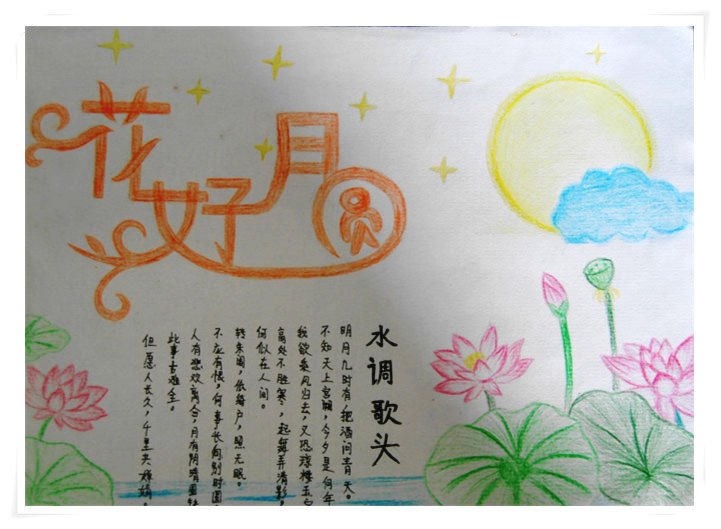 花好月圆
水调歌头
明月几时有,把酒问青天。
不知天上宫阙,今夕是何年
我欲乘风归去,又恐琼楼玉
高处不胜寒,起舞弄清影,
何似在人间。
转朱阁,低绮户,照无眠。
不应有恨,何事长向别时圆
人有悲欢离合,月有阴晴圆缺
此事古难全。
但愿人长久,千里共婵娟。